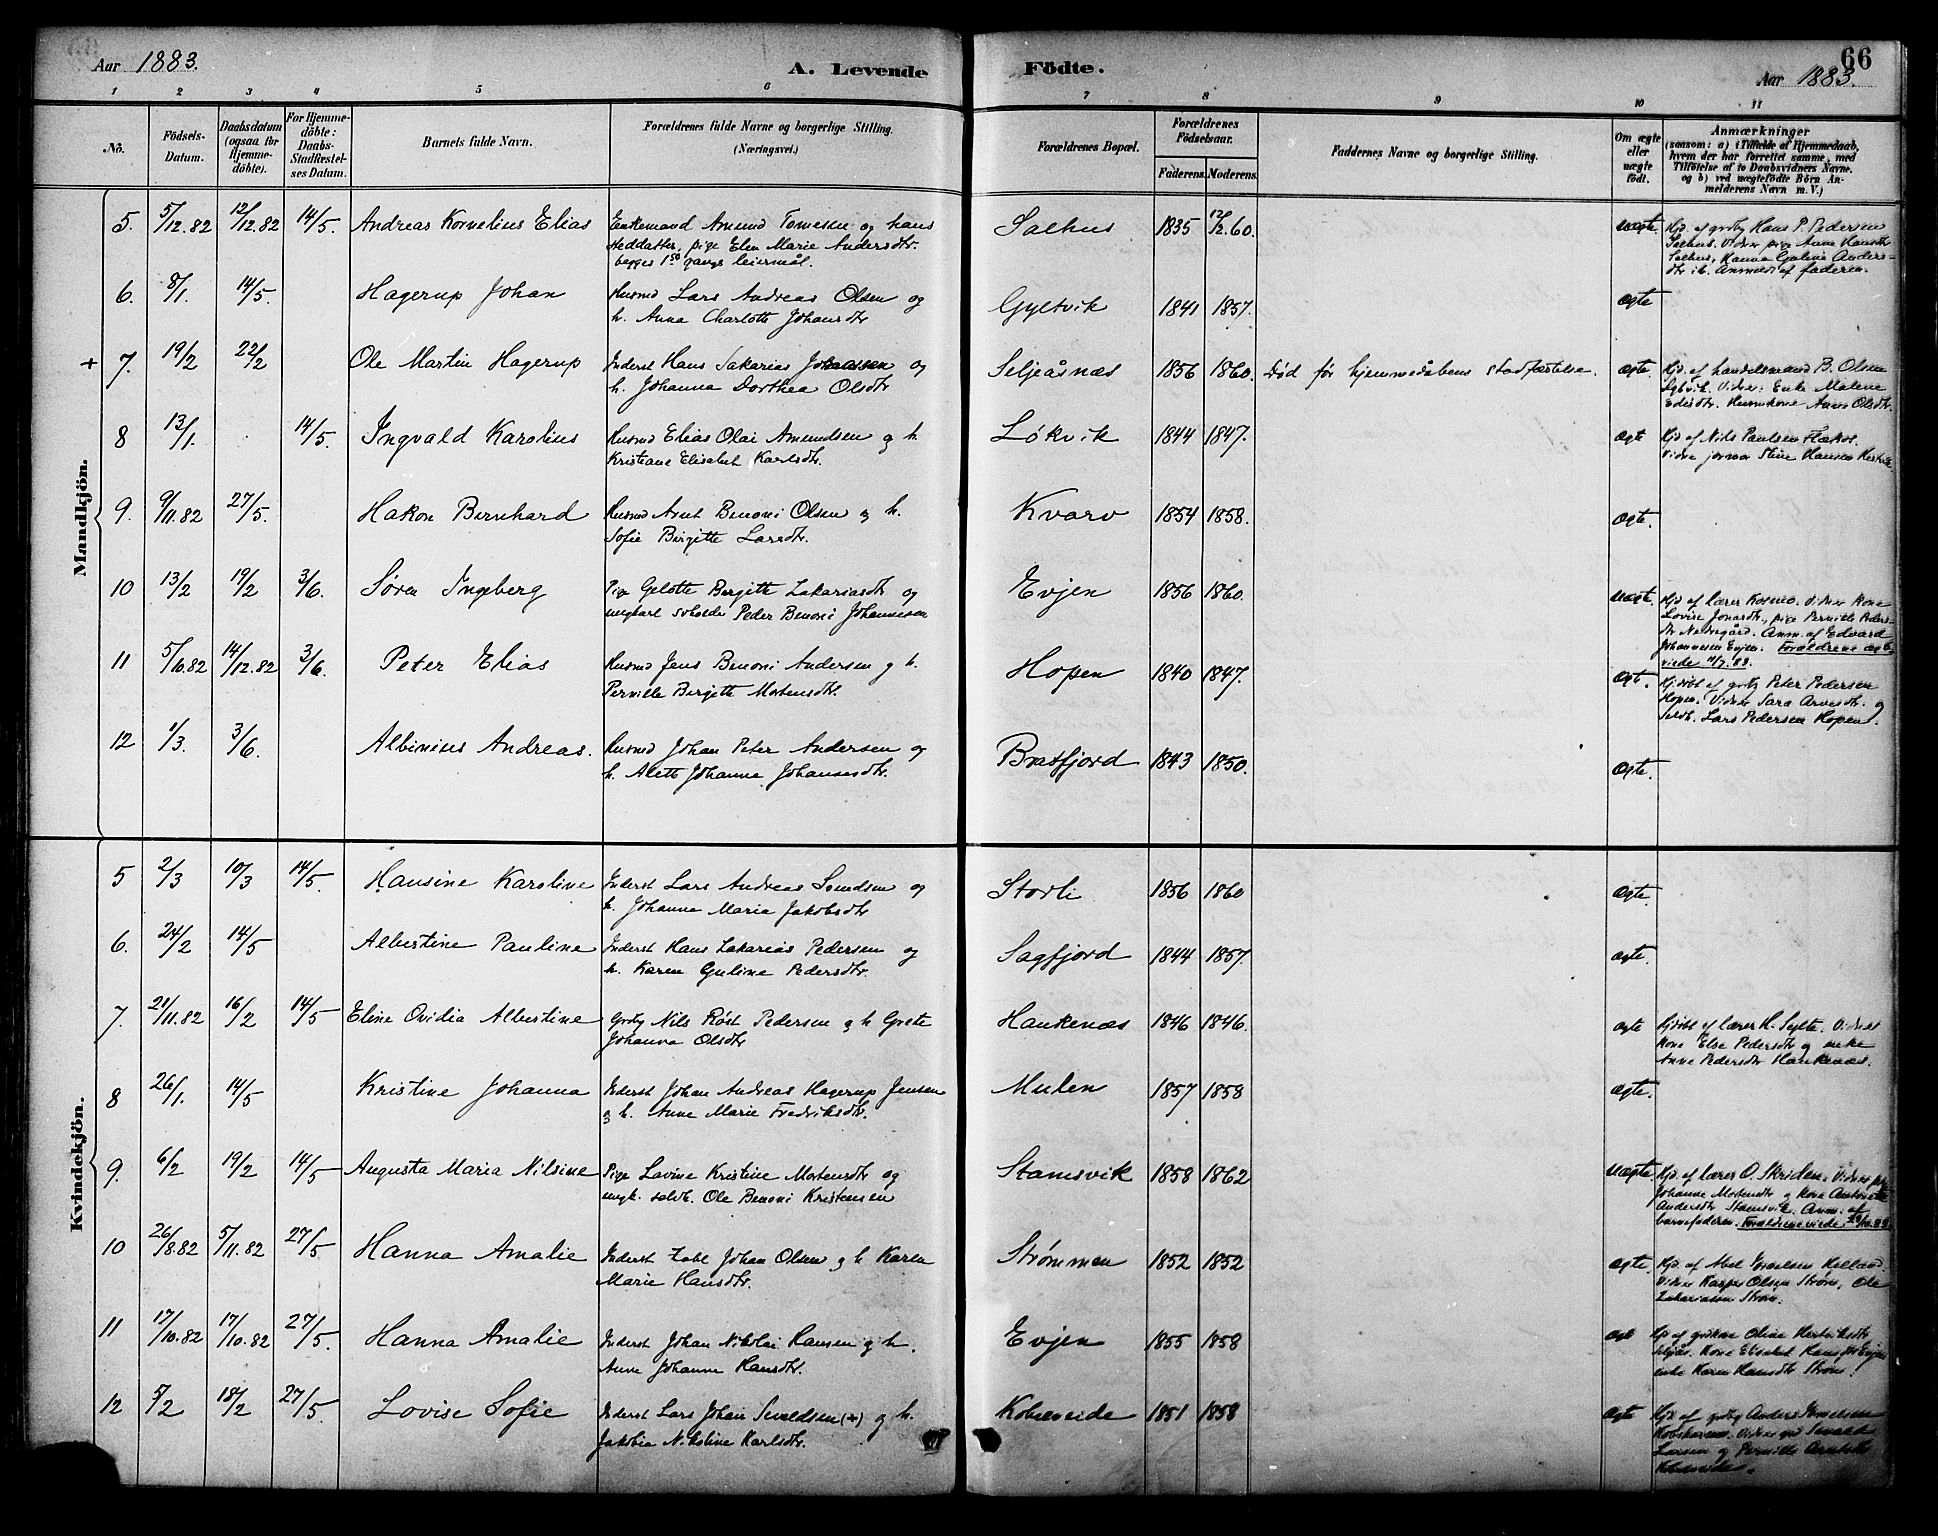 66
Aar 1883.
A. Levende Födte.
Aar 1883.
1 2 3 4 5 6 7 8 9 10 11
No.
Födsels-Datum.
Daabsdatum (ogsaa for Hjemme-döbte).
For Hjemme-döbte: Daabs-Stadfæstel-ses Datum.
Barnets fulde Navn.
Forældrenes fulde Navne og borgerlige Stilling.
(Næringsvei.)
Forældrenes Bopæl.
Forældrenes Födselsaar.
Faderens. Moderens.
Faddernes Navne og borgerlige Stilling.
Om ægte eller uægte födt.
Anmærkninger
(saasom: a) i Tilfælde af Hjemmedaab,
hvem der har forrettet samme, med
Tilföielse af to Daabsvidners Navne.
og b) ved uægtefödte Börn An-
melderens Navn m. V.)
Mandkjön.
5. 5/12.82 12/12.82 14/5. Andreas Kornelius Elias Enkemand Amund Tomesen og hans Saelhus 1835 12/12.60. uægte. Hjd. af grdbg Hans P. Pedersen
steddatter, pige Elen Marie Andersdtr. Saelhus. Vidner pige Anne Hansdtr
begges 1ste gangs leiermål. Saelhus, Hanna Gjeline Anders-
dtr ib. Anmeldt af faderen.
6. 8/1. 14/5. Hagerup Johan Husmd Lars Andreas Olsen og Gyltvik 1841 1857. ægte
h. Anna Charlotte Johansdtr
+ 7. 19/2 22/2 Ole Martin Hagerup Inderst Hans Sakarias Johnassen og Seljeåsnæs 1856 1860. død før hjemmedåbens stadfæstelse. ægte. Hjd. af handelsmand B. Olsen
h. Johanna Dorthea Olsdtr Gyltvik. Vidner: Enke Malene
Edisdtr. Husmkone Anne Olsdtr.
8 13/1. 14/5. Ingvald Karolius Husmd Elias Olai Amundsen og h. Løkvik 1844 1847. ægte Hjd af Nils Paulsen Flækos.
Kristiane Elisabet Karlsdtr. Vidne jormor Stine Hansen
9. 9/11.82 27/5. Hakon Bernhard Husmd Arnt Benoni Olsen og h. Kvarv 1854 1858. ægte.
Sofie Birgitte Larsdtr.
10 13/2 19/2 3/6. Søren Ingeberg Pige Gelotte Bergitte Zakariasdtr og Evjen 1856 1860. uægte. Hjd. af lærer Kosmo. Vidner kone
ungkarl selveide Peder Benoni Johannesen Lovise Jonasdtr., pige Pernille Peders-
dtr Nedregård. Anm. af Edvard
Johannesen Evjen. Forældrene ægte-
viede 11/7.83.
11 5/6.82 14/12.82 3/6. Peter Elias Husmd Jens Benoni Andersen og h. Hopen 1840 1847. ægte. Hjdøbt af grdbg Peter Pedersen
Pernille Bergitte Mortensdtr. Hopen. Vidner Sara Arvesdtr. og
selvb. Lars Pedersen Hopen.
12 1/3. 3/6. Albinius Andreas. Husmd Johan Peter Andersen og Bratfjord 1843 1850. ægte.
h. Alette Johanna Johansesdtr.
Kvindekjön.
5 2/3 10/3 14/5. Hansine Karoline Inderst Lars Andreas Svendsen og Storli 1856 1860 ægte.
h. Johanna Maria Jakobsdtr
6. 24/2 14/5 Albertine Pauline Inderst Hans Zakarias Pedersen og Sagfjord 1844 1857. ægte.
h. Karen Guline Pedersdtr.
7. 21/11.82 16/2 14/5 Eline Ovidia Albertine Grdbg Nils Røst Pedersen og h Grete Haukenæs 1846 1846. ægte Hjdøbt af lærer H. Sylte. Vidner
Johanna Olsdtr kone Else Pedersdtr og enke
Anne Pedersdtr Haukenæs.
8 26/1. 14/5 Kristine Johanna Inderst Johan Andreas Hagerup Jensen Mulen 1857 1858 ægte.
og h. Anne Marie Fredriksdtr.
9. 6/2 19/2 14/5 Augusta Maria Nilsine Pige Lavine Kristine Mortensdtr og Stamsvik 1858 1862 uægte Hjd. af lærer O. Skriden. Vidner pige
ungk. selvb. Ole Benoni Kristensen Johanne Mortensdtr og kone Antonette
Andersdtr Stamsvik. Anm. af
barnefaderen. Forældrene viede
10 26/8.82 5/11.82 27/5 Hanna Amalie Inderst Johan Olsen og h Karen Strømmen 1852 1852 ægte. Hjd. af Abel Helland.
Marie Hansdtr. Vidner Kasper Olsen Strøm, Ole
Zakariasen Strøm.
11 17/10.82 17/10.82 27/5. Hanna Amalie Inderst Johan Nikolai Hansen og h. Evjen 1855 1858 ægte Hjd af grdkone Oline Henriksdtr
Anne Johanne Hansdtr. Seljås. Kone Elisabet Hansdtr Evjen
enke Karen Hansdtr Strøm.
12 5/2 18/2 27/5. Lovise Sofie Inderst Lars Johan Sevaldsen (+) og h. Kobævsveide 1851 1858 ægte Hjd af grdbg Anders
Jakobia Nikoline Karlsdtr. Vidner grd Sevald
Larsen og Pernille